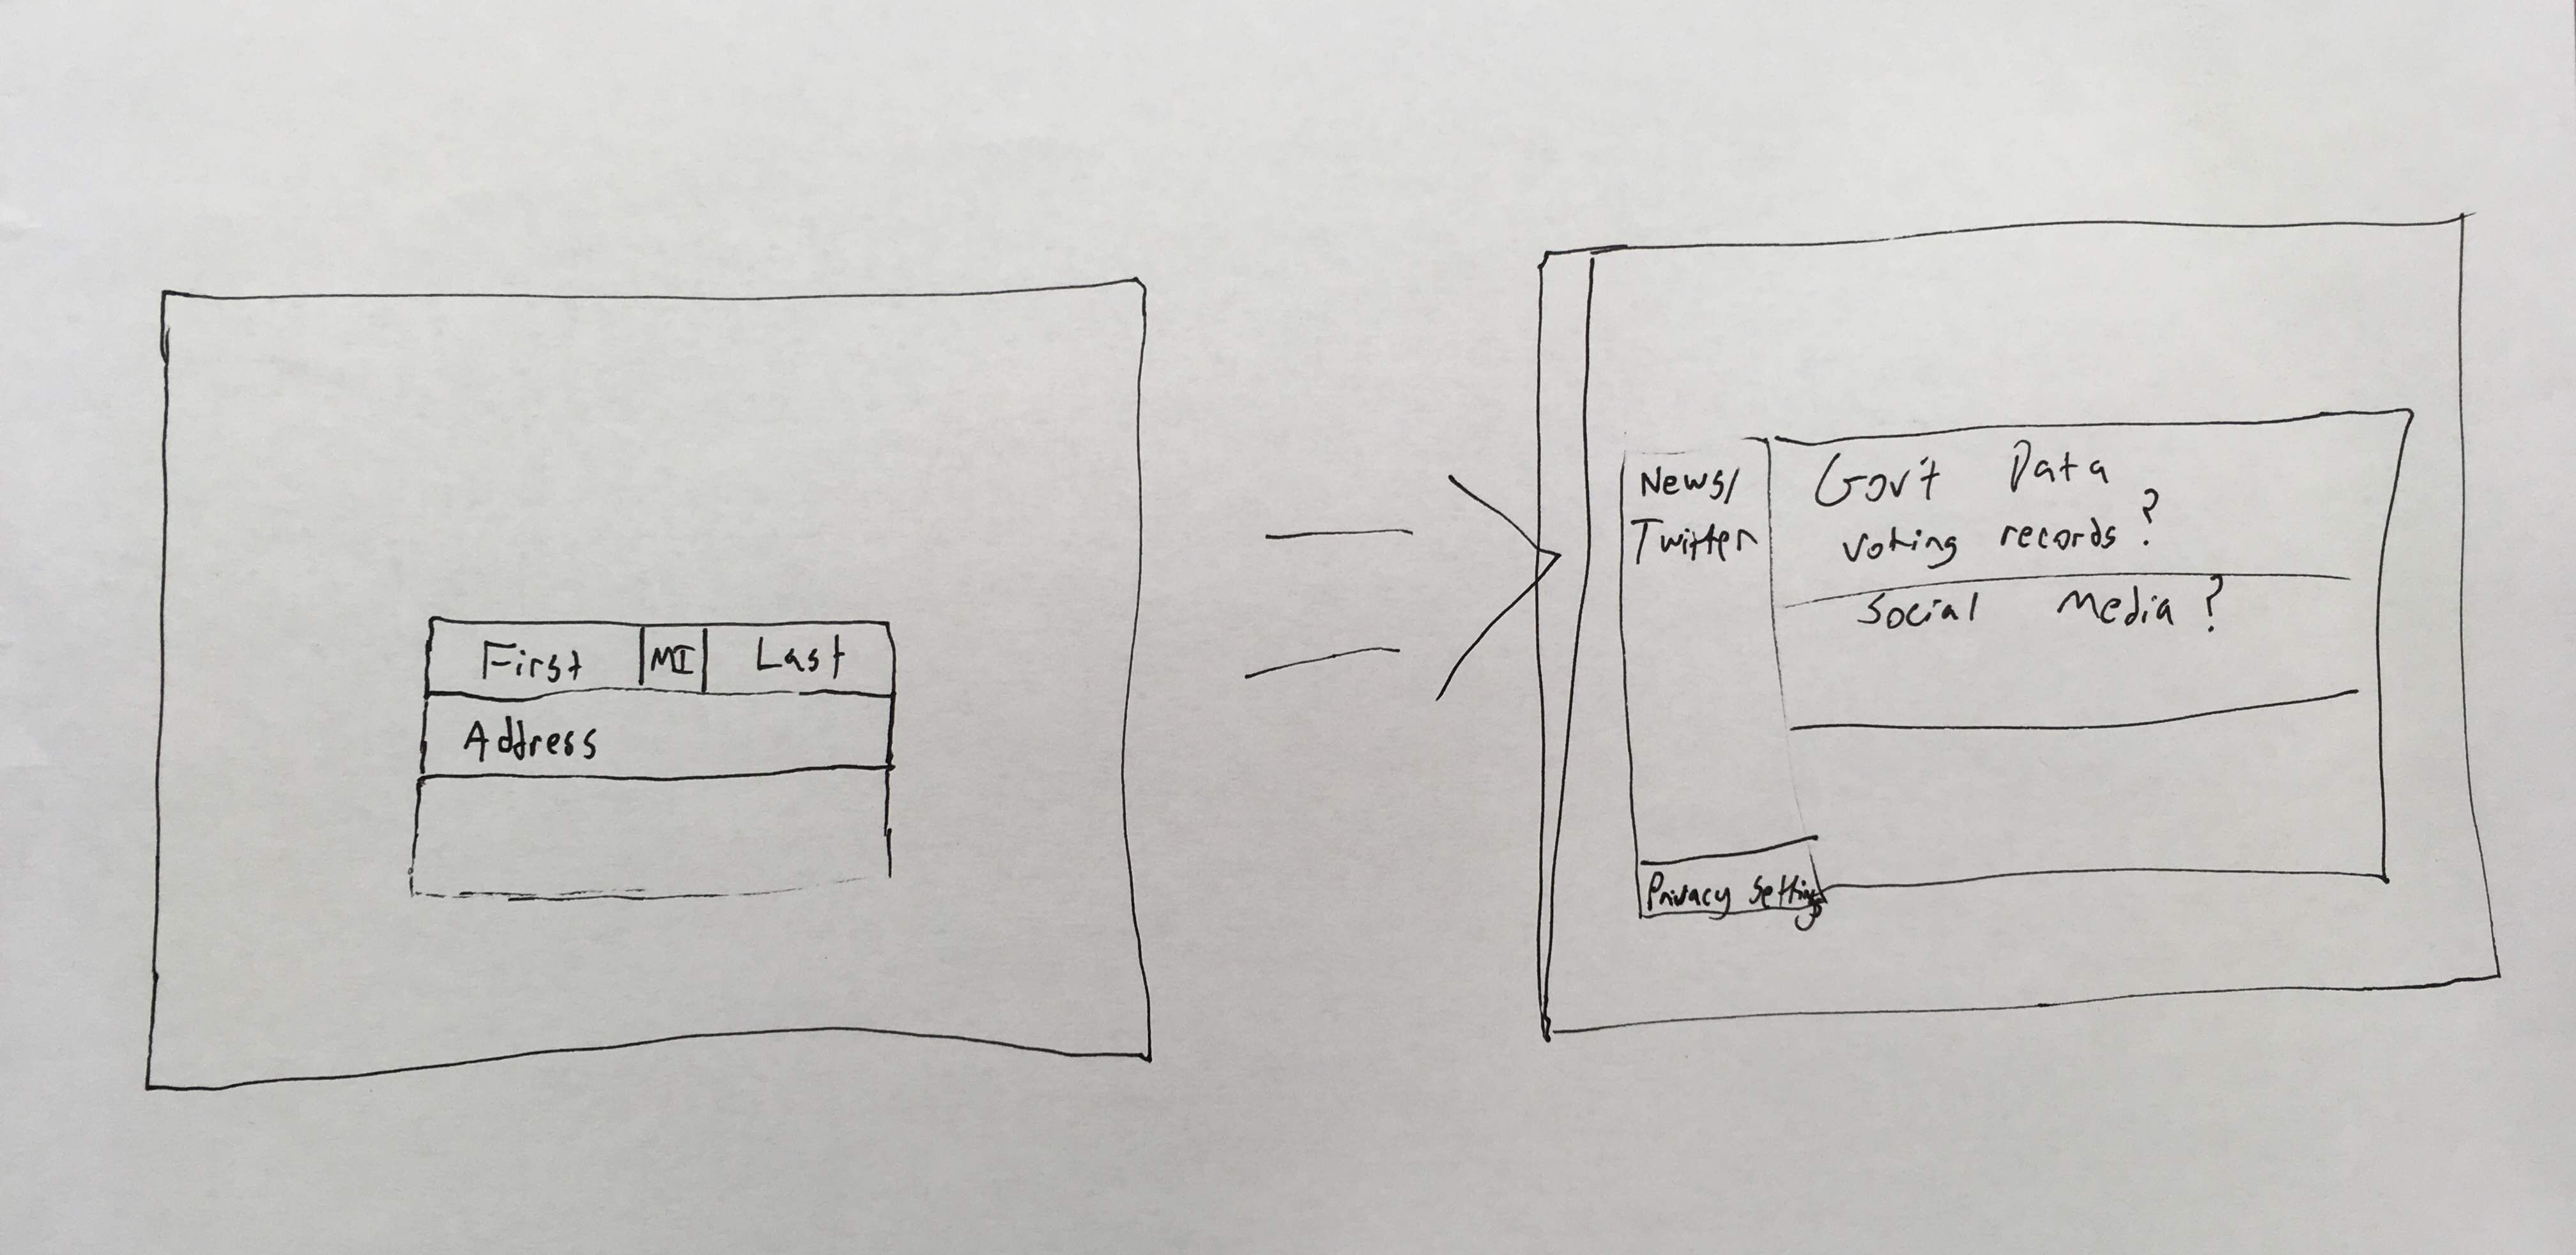 First MI Last
Address
News/
Twitter
Privacy Settings
Gov't Data
voting records?
Social Media?